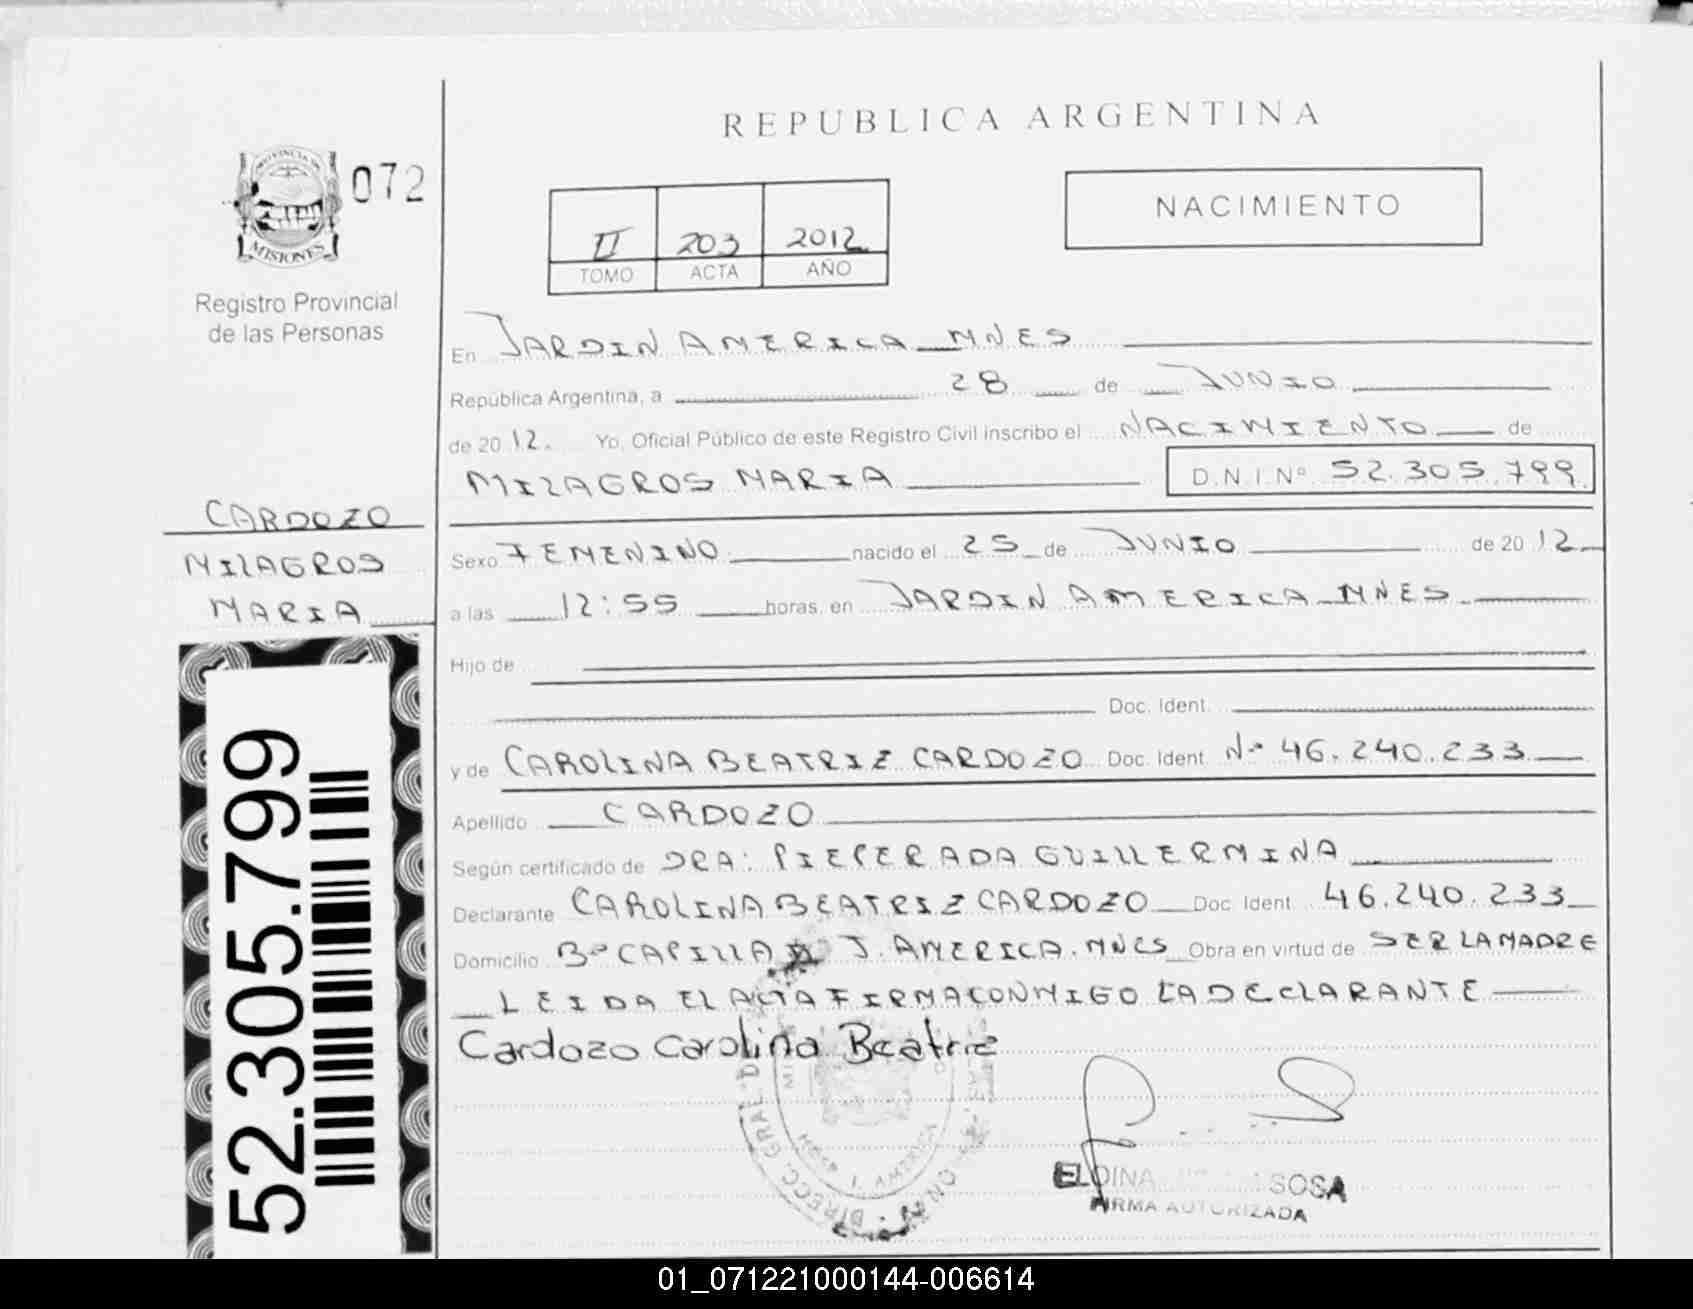 REPUBLICA ARGENTINA
PROVINCIA DE
MISIONES
072
Registro Provincial
de las Personas
II 203 2012
TOMO ACTA AÑO
NACIMIENTO
En JARDIN AMERICA MNES
República Argentina, a 28 de JUNIO
de 2012. Yo, Oficial Público de este Registro Civil inscribo el NACIMIENTO de
MILAGROS MARIA D.N.I Nº 52.305.799
CARDOZO
MILAGROS
MARIA
Sexo FEMENINO nacido el 25 de JUNIO de 2012
a las 12:55 horas, en JARDIN AMERICA MNES
Hijo de
Doc. Ident.
y de CAROLINA BEATRIZ CARDOZO Doc. Ident Nº 46.240.233
Apellido CARDOZO
Según certificado de DRA: PIEPER ADA GUILLERMINA
Declarante CAROLINA BEATRIZ CARDOZO Doc. Ident 46.240.233
Domicilio Bº CAPILLA J. AMERICA. MNES Obra en virtud de SER LA MADRE
LEIDA EL ACTA FIRMA CONMIGO LA DECLARANTE
Cardozo Carolina Beatriz
52.305.799
DIRECC. GRAL. DE
J. AMERICA
ELOINA SOSA
FIRMA AUTORIZADA
01_071221000144-006614